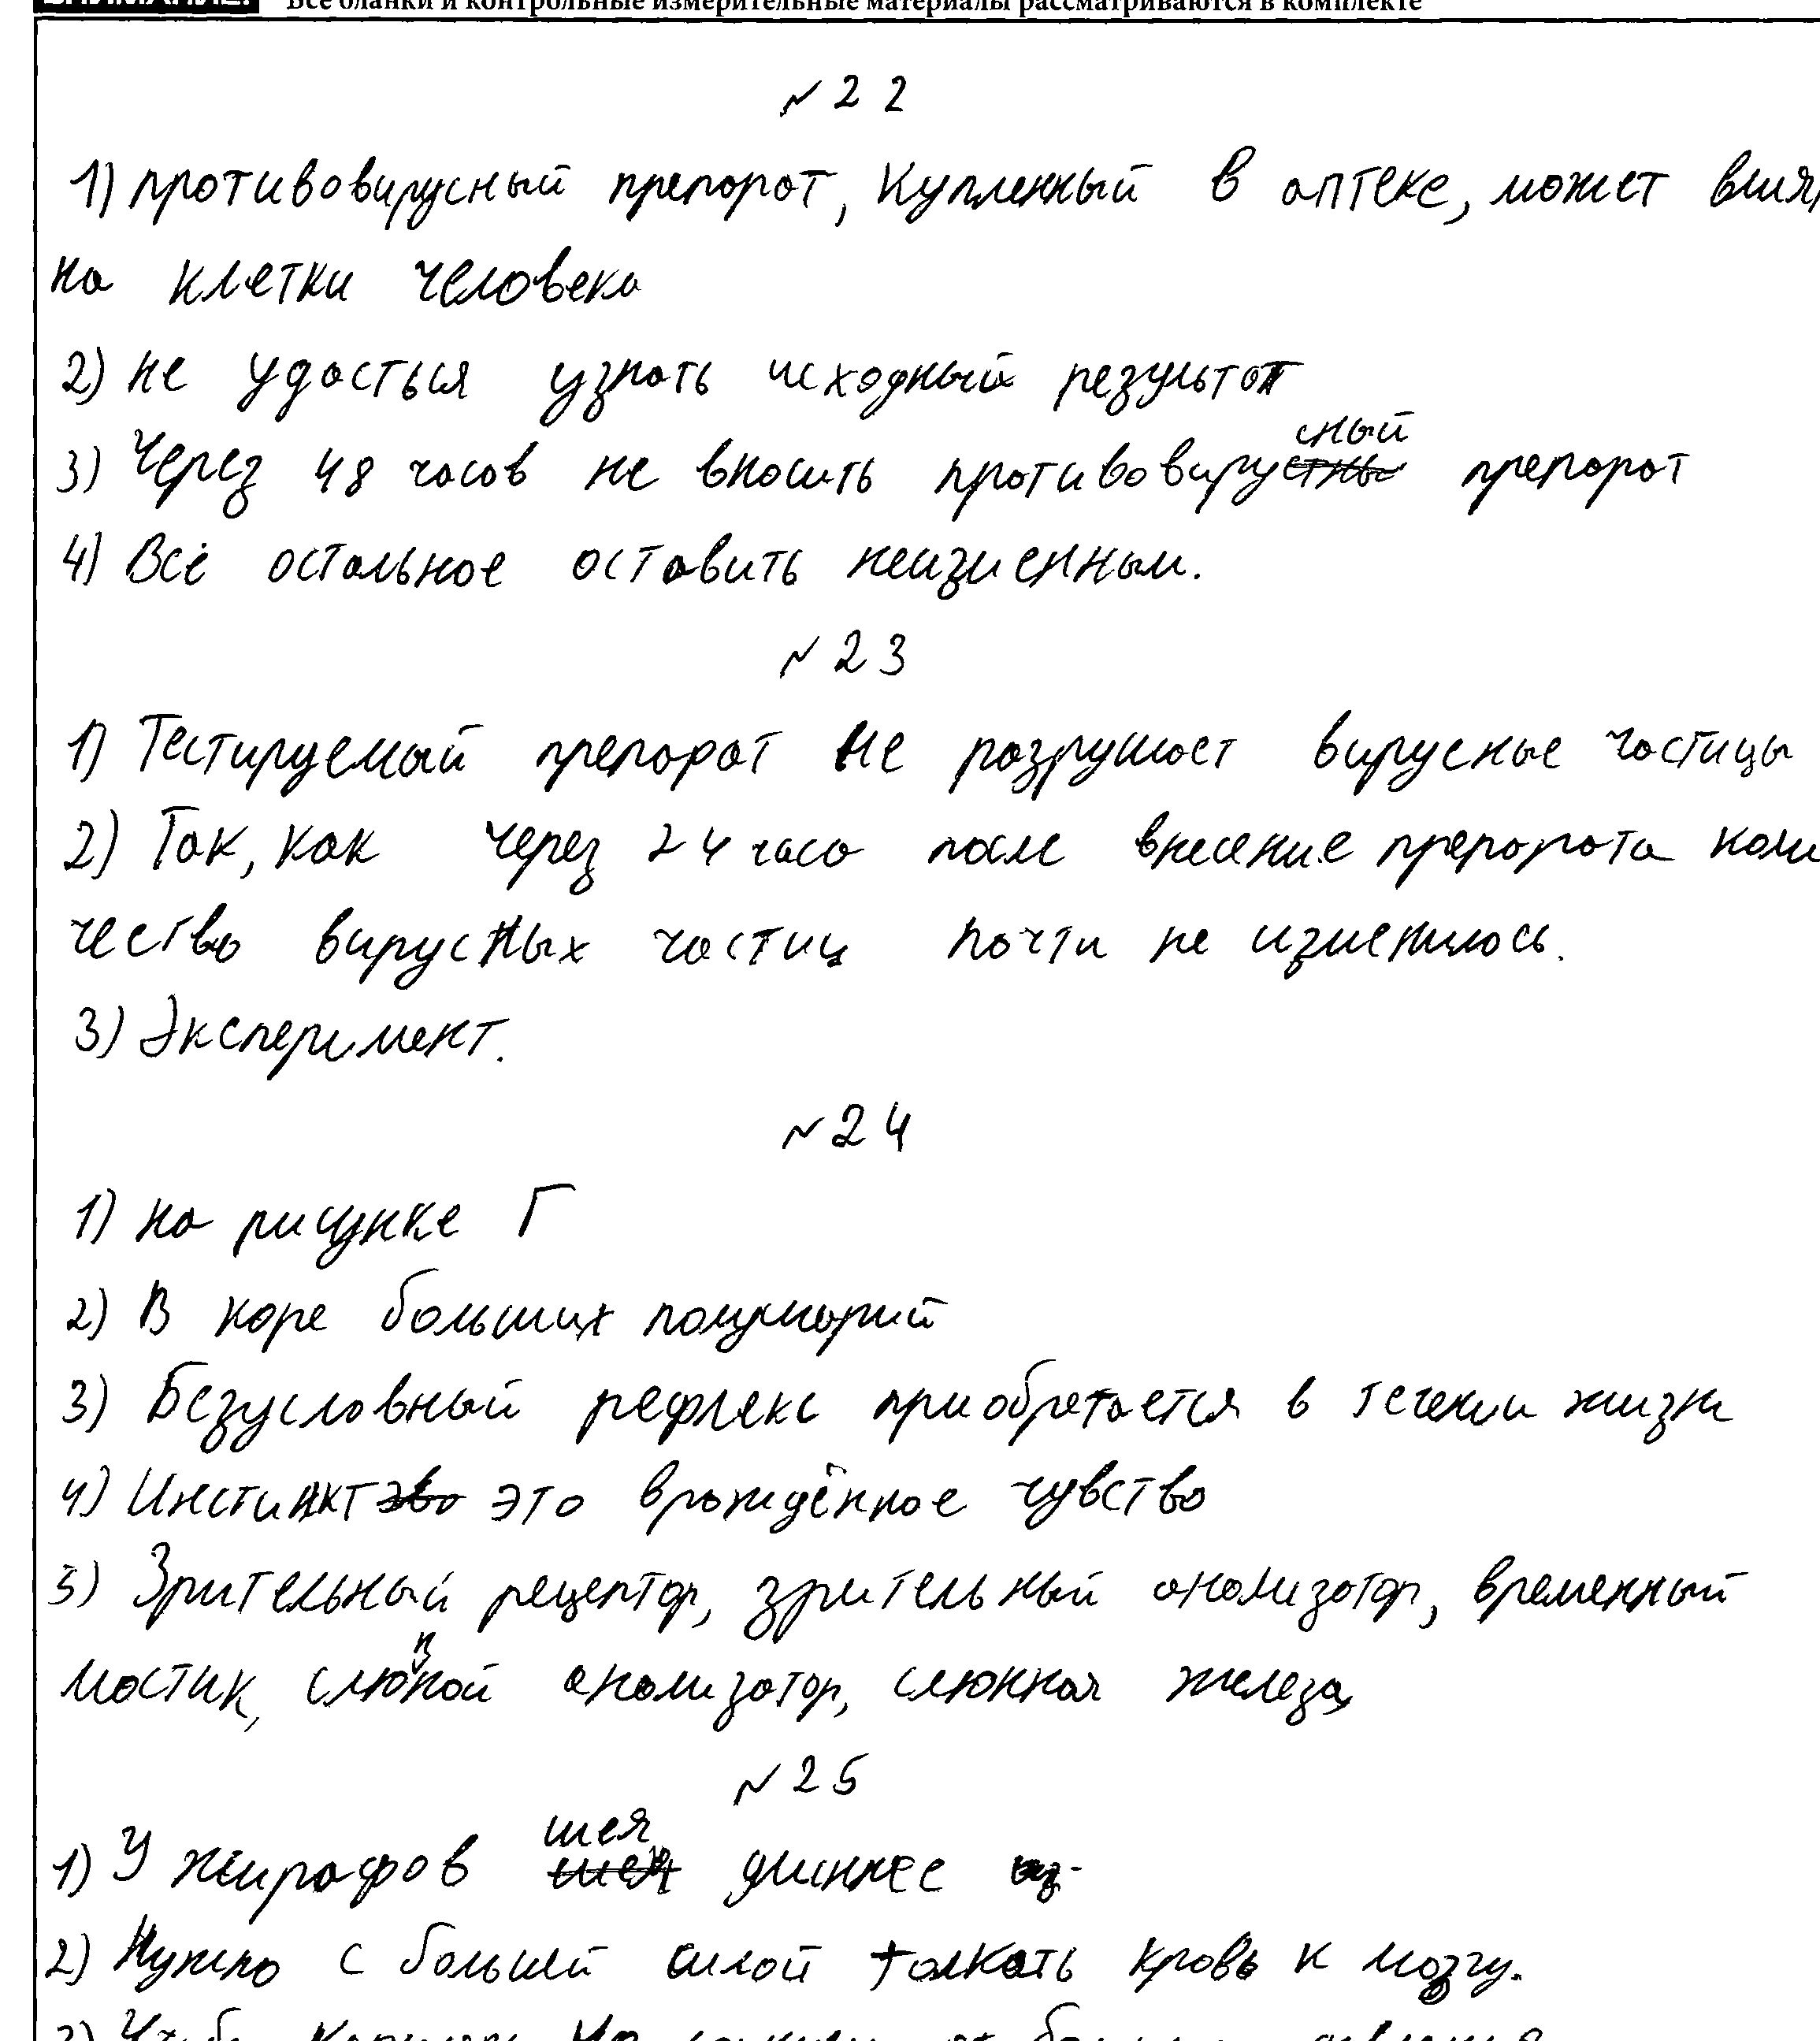 Все бланки и контрольные измерительные материалы рассматриваются в комплекте
№ 22
1) противовирусный препорот, купленный в аптеке, может влия
на клетки человека
2) не удасться узнать исходный результат
3) Через 48 часов не вносить противовирусный препорот
4) Всё остальное оставить неизменным.
№ 23
1) Тестируемый препорат не разрушает вирусные частицы
2) Так, как через 24 часа после внесение препората коли
чество вирусных частиц почти не изменилось.
3) Эксперимент.
№ 24
1) на рисунке Г
2) В коре больших полушарий
3) Безусловный рефлекс приобретается в течении жизни
4) Инстинкт это врождённое чувство
5) Зрительный рецептор, зрительный анализатор, временный
мостик, слюнной анализатор, слюнная железа
№ 25
1) У жирафов шея длиннее
2) Нужно с большей силой толкать кровь к мозгу.